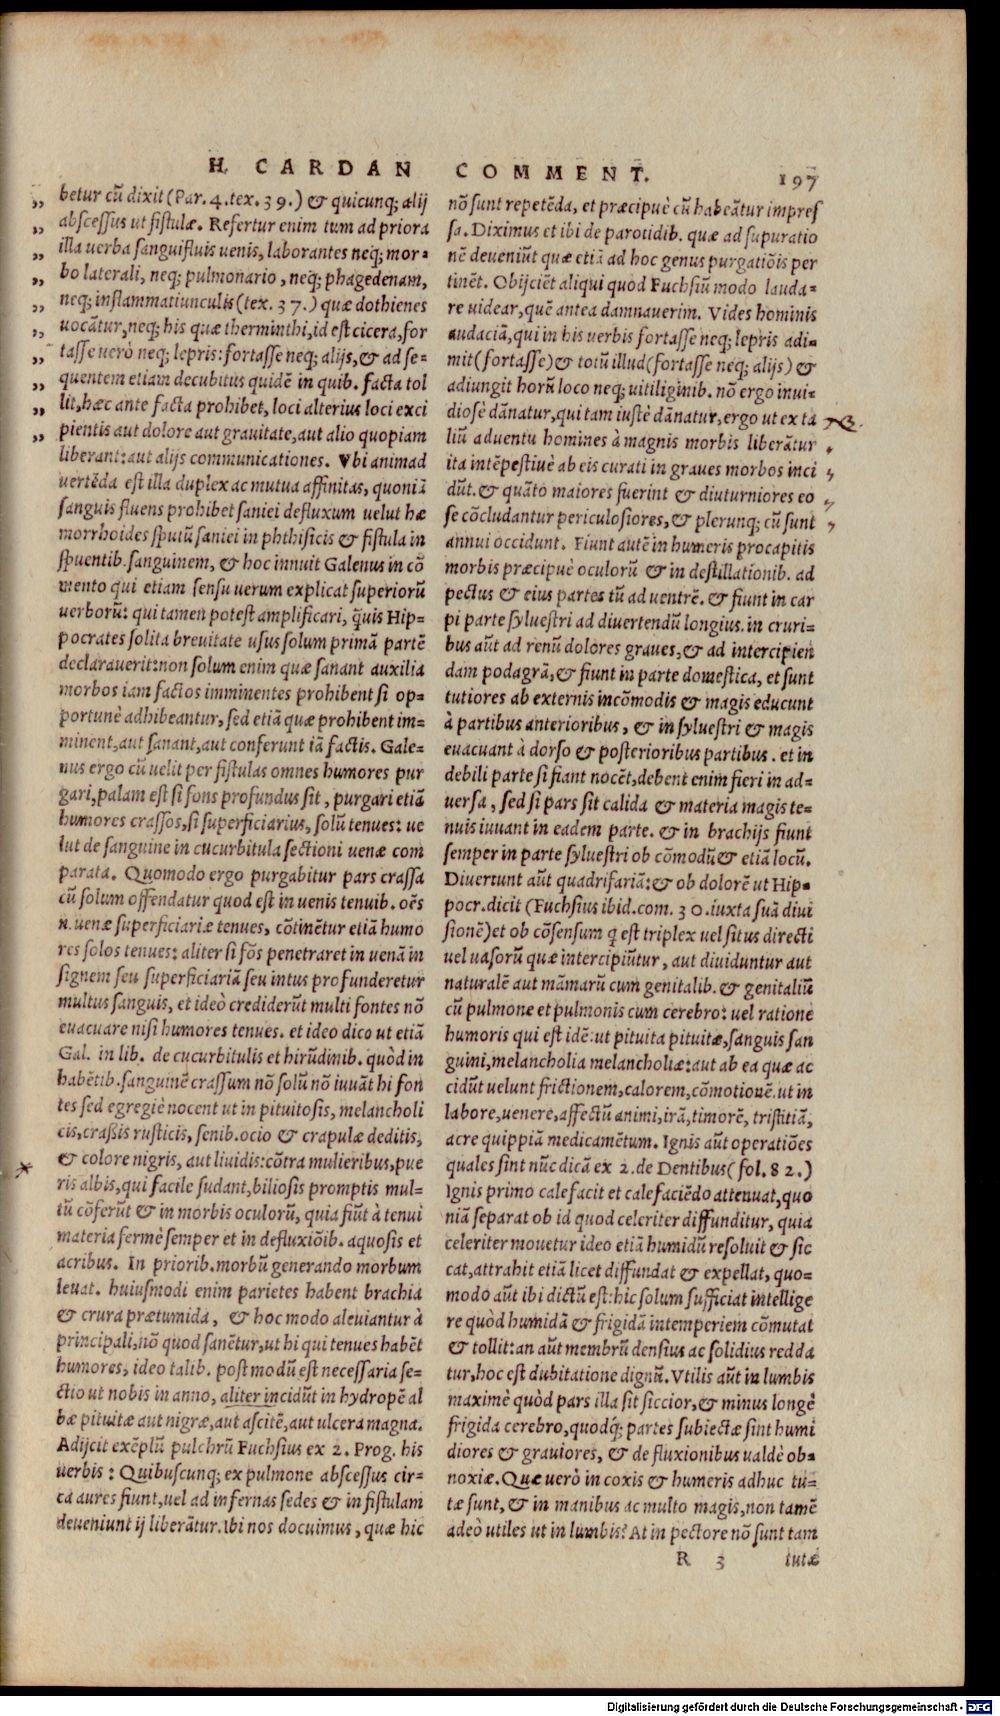 H. CARDAN COMMENT. 197
betur cū dixit (Par. 4. tex. 39.) & quicunq; alij
abscessus ut fistulæ. Refertur enim tum ad priora
illa uerba sanguifluis uenis, laborantes neq; mor-
bo laterali, neq; pulmonario, neq; phagedenam,
neq; inflammatiunculis (tex. 37.) quæ dothienes
uocātur, neq; his quæ therminthi, id est cicera, for
tasse uerò neq; lepris: fortasse neq; alijs, & ad se-
quentem etiam decubitus quidē in quib. facta tol
lit, hæc ante facta prohibet, loci alterius loci exci
pientis aut dolore aut grauitate, aut alio quopiam
liberant: aut alijs communicationes. Vbi animad
uertēda est illa duplex ac mutua affinitas, quoniā
sanguis fluens prohibet saniei defluxum uelut hæ
morrhoides sputū saniei in phthisicis & fistula in
spuentib. sanguinem, & hoc innuit Galenus in cō
mento qui etiam sensu uerum explicat superiorū
uerborū: qui tamen potest amplificari, q̄uis Hip-
pocrates solita breuitate usus solum primā partē
declarauerit: non solum enim quæ sanant auxilia
morbos iam factos imminentes prohibent si op-
portunè adhibeantur, sed etiā quæ prohibent im-
minent, aut sanant, aut conferunt iā factis. Gale-
nus ergo cū uelit per fistulas omnes humores pur
gari, palam est si fons profundus sit, purgari etiā
humores crassos, si superficiarius, solū tenues: ue
lut de sanguine in cucurbitula sectioni uenæ com
parata. Quomodo ergo purgabitur pars crassa
cū solum offendatur quod est in uenis tenuib. oēs
n. uenæ superficiariæ tenues, cōtinētur etiā humo
res solos tenues: aliter si fōs penetraret in uenā in
signem seu superficiariā seu intus profunderetur
multus sanguis, et ideò crediderūt multi fontes nō
euacuare nisi humores tenues. et ideo dico ut etiā
Gal. in lib. de cucurbitulis et hirūdinib. quòd in
habētib. sanguinē crassum nō solū nō iuuāt hi fon
tes sed egregiè nocent ut in pituitosis, melancholi
cis, crassis rusticis, senib. ocio & crapulæ deditis,
& colore nigris, aut liuidis: cōtra mulieribus, pue
ris albis, qui facile sudant, biliosis promptis mul-
tū cōferūt & in morbis oculorū, quia fiūt à tenui
materia fermè semper et in defluxiōib. aquosis et
acribus. In priorib. morbū generando morbum
leuat. huiusmodi enim parietes habent brachia
& crura prætumida, & hoc modo aleuiantur à
principali, nō quod sanētur, ut hi qui tenues habēt
humores, ideo talib. post modū est necessaria se-
ctio ut nobis in anno, aliter incidūt in hydropē al
bæ pituitæ aut nigræ, aut ascitē, aut ulcera magna.
Adijcit exēplū pulchrū Fuchsius ex 2. Prog. his
uerbis: Quibuscunq; ex pulmone abscessus cir-
ca aures fiunt, uel ad infernas sedes & in fistulam
deueniunt ij liberātur. Ibi nos docuimus, quæ hic
nō sunt repetēda, et præcipuè cū habeātur impres
sa. Diximus et ibi de parotidib. quæ ad supuratio
nē deueniūt quæ etiā ad hoc genus purgatiōis per
tinēt. Obijciēt aliqui quòd Fuchsiū modo lauda-
re uidear, quē antea damnauerim. Vides hominis
audaciā, qui in his uerbis fortasse neq; lepris adi-
mit (fortasse) & totū illud (fortasse neq; alijs) &
adiungit horū loco neq; uitiliginib. nō ergo inui-
diosè dānatur, qui tam iustè dānatur, ergo ut ex ta
liū aduentu homines à magnis morbis liberātur
ita intēpestiuè ab eis curati in graues morbos inci
dūt. & quāto maiores fuerint & diuturniores eo
se cōcludantur periculosiores, & plerunq; cū sunt
annui occidunt. Fiunt autē in humeris pro capitis
morbis præcipuè oculorū & in destillationib. ad
pectus & eius partes tū ad uentrē. & fiunt in car
pi parte syluestri ad diuertendū longius. in cruri-
bus aūt ad renū dolores graues, & ad intercipien
dam podagrā, & fiunt in parte domestica, et sunt
tutiores ab externis incōmodis & magis educunt
à partibus anterioribus, & in syluestri & magis
euacuant à dorso & posterioribus partibus. et in
debili parte si fiant nocēt, debent enim fieri in ad-
uersa, sed si pars sit calida & materia magis te-
nuis iuuant in eadem parte. & in brachijs fiunt
semper in parte syluestri ob cōmodū & etiā locū.
Diuertunt aūt quadrifariā: & ob dolorē ut Hip-
pocr. dicit (Fuchsius ibid. com. 30. iuxta suā diui
sionē) et ob cōsensum q est triplex uel situs directi
uel uasorū quæ intercipiūtur, aut diuiduntur aut
naturalē aut māmarū cum genitalib. & genitaliū
cū pulmone et pulmonis cum cerebro: uel ratione
humoris qui est idē: ut pituita pituitæ, sanguis san
guini, melancholia melancholiæ: aut ab ea quæ ac
cidūt uelunt frictionem, calorem, cōmotionē. ut in
labore, uenere, affectū animi, irā, timorē, tristitiā,
acre quippiā medicamētum. Ignis aūt operatiōes
quales sint nūc dicā ex 2. de Dentibus (fol. 82.)
Ignis primo calefacit et calefaciēdo attenuat, quo
niā separat ob id quod celeriter diffunditur, quia
celeriter mouetur ideo etiā humidū resoluit & sic
cat, attrahit etiā licet diffundat & expellat, quo-
modo aūt ibi dictū est: hic solum sufficiat intellige
re quòd humidā & frigidā intemperiem cōmutat
& tollit: an aūt membrū densius ac solidius redda
tur, hoc est dubitatione dignū. Vtilis aūt in lumbis
maximè quòd pars illa sit siccior, & minus longè
frigida cerebro, quodq́; partes subiectæ sint humi
diores & grauiores, & de fluxionibus ualdè ob-
noxiæ. Quæ uerò in coxis & humeris adhuc tu-
tæ sunt, & in manibus ac multo magis, non tamē
adeò utiles ut in lumbis? At in pectore nō sunt tam
R 3 tutæ
Digitalisierung gefördert durch die Deutsche Forschungsgemeinschaft - DFG